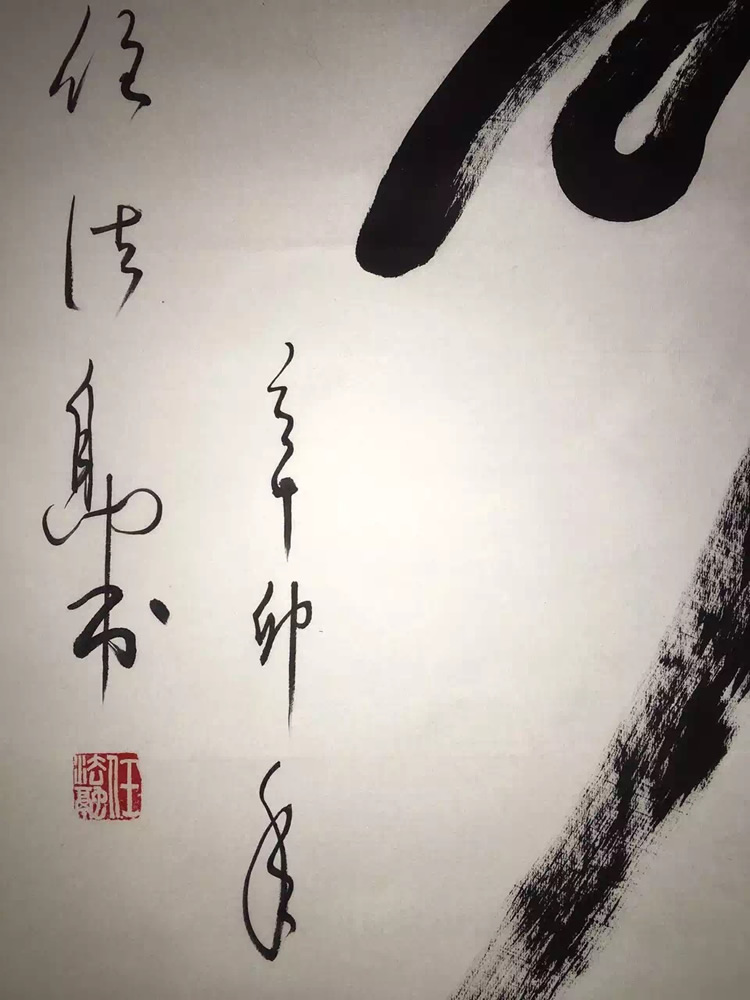 辛卯年
任法融书
任法融